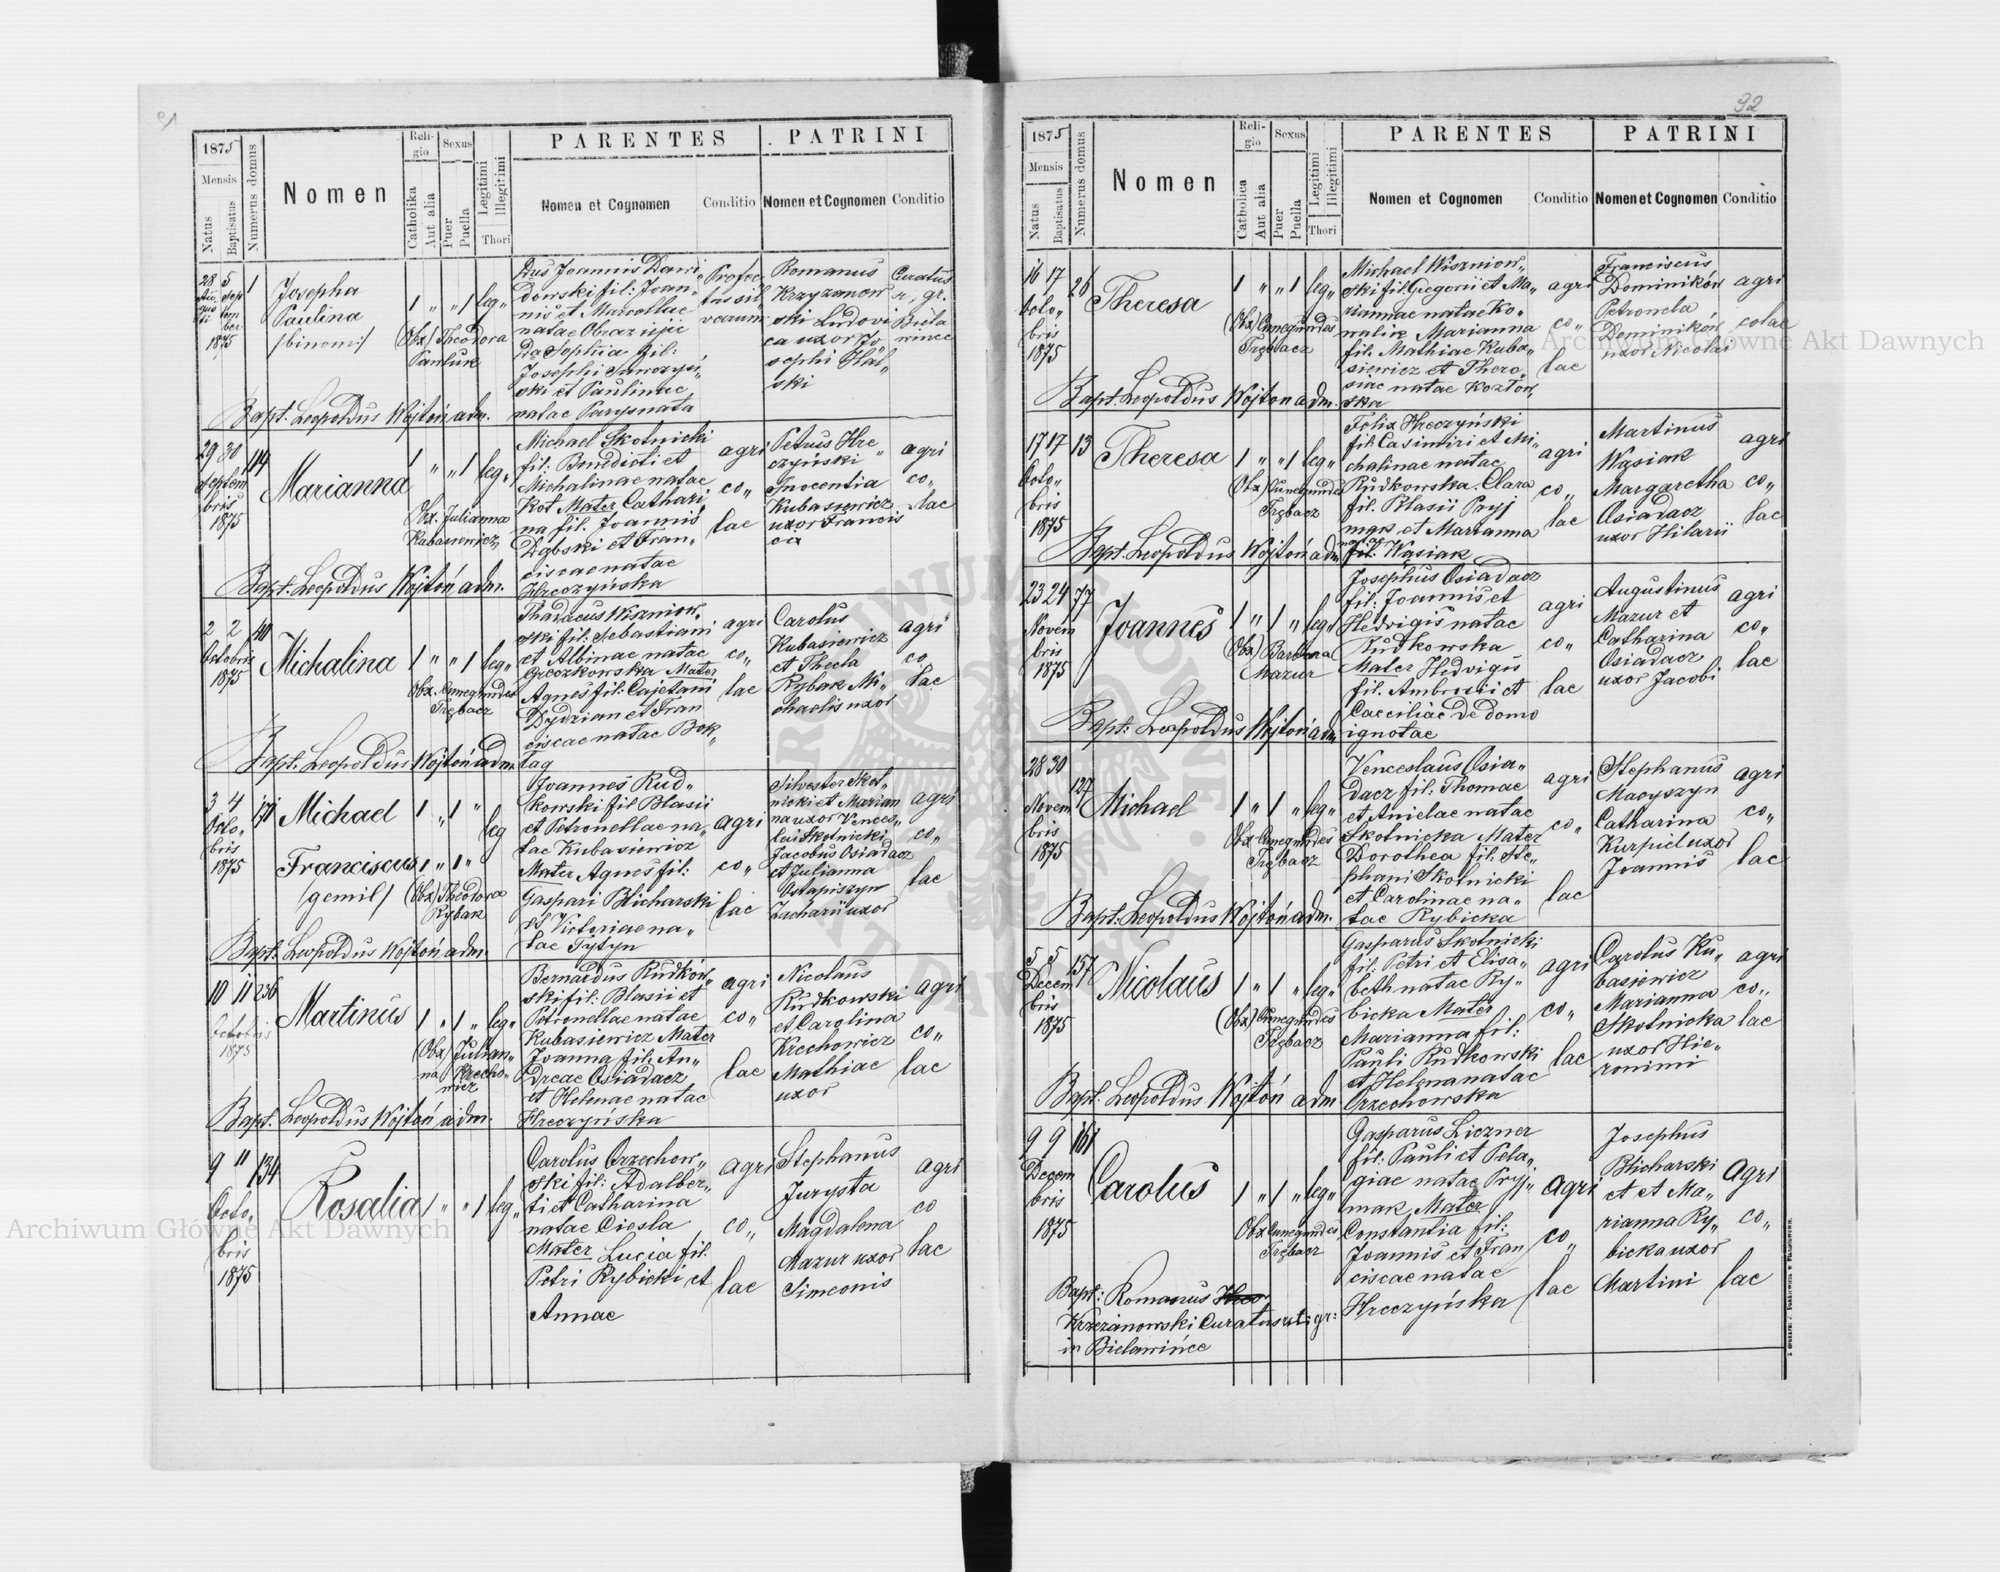 32
1875
Mensis
Natus
Baptisatus
Numerus domus
Nomen
Religio
Catholika
Aut alia
Sexus
Puer
Puella
Legitimi
Illegitimi
Thori
PARENTES
Nomen et Cognomen
Conditio
PATRINI
Nomen et Cognomen
Conditio
28 5 1
1875
Josepha
Paulina
/binomi/
1 „ „ 1 leg„
(Obx) Theodora
Pawluk
Dus Joannis Dawi„
dowski fil: Joan„
nis et Marcellae
Da Sophia fil:
Josephi
ski et Paulinae
natae
Romanus
Krzyzanow
ski Ludovi
ca uxor Jo
sephi Hal„
ski
Curatus
r. gr.
Bapt. Leopoldus Wojtoń adm.
29 30 114
Septem
bris
1875
Marianna
1 „ „ 1 leg„
Obx. Julianna
Kubasiewicz
Michael Skotnicki
fil: Benedicti et
Michalinae natae
Kot Mater Cathari„
na fil. Joannis
Dąbski et Fran„
ciscae natae
Hreczyńska
agri
co„
lae
Petrus Hre
czyński
Inocentia
Kubasiewicz
uxor Francis
ci
agri
co„
lae
Bapt. Leopoldus Wojtoń adm.
2 2 40
Octobris
1875
Michalina
1 „ „ 1 leg„
Obx. Cunegundes
Trębacz
Thadaeus Wiszniow„
ski fil: Sebastiani
et Albinae natae
Mater
Agnes fil: Cajetani
Dydzian et Fran
ciscae natae Bok„
tag
agri
co„
lae
Carolus
Kubasiewicz
et Thecla
Rybak Mi„
chaelis uxor
agri
co„
lae
Bapt. Leopoldus Wojtoń adm.
3 4 171
Octo„
bris
1875
Michael
1 „ 1 „ leg
Franciscus
1 „ 1 „
/gemil/
(Obx) Theodora
Rybak
Joannes Rud„
kowski fil Blasii
et Petronellae na„
tae Kubasiewicz
Mater Agnes fil:
Gaspari Blicharski
et Victoriae na„
tae Tytyn
agri
co„
lae
Silvester Skot„
nicki et Marian
na uxor Vences„
lai Skotnicki
Jacobus Osiadacz
et Julianna
Ostapiszyn
Zacharii uxor
agri
co„
lae
Bapt: Leopoldus Wojtoń adm.
10 11 236
Octobris
1875
Martinus
1 „ 1 „ leg„
(Obx) Julian„
na Krecho„
wicz
Bernardus Rudkow„
ski fil: Blasii et
Petronellae natae
Kubasiewicz Mater
Joanna fil: An„
dreae Osiadacz
et Helenae natae
Hreczyńska
agri
co„
lae
Nicolaus
Rudkowski
et Carolina
Krechowicz
Mathiae
uxor
agri
co„
lae
Bapt. Leopoldus Wojtoń adm.
9 11 134
Octo„
bris
1875
Rosalia
1 „ „ 1 leg„
Carolus Orzechow„
ski fil: Adalber„
ti et Catharina
natae Ciesla
Mater Lucia fil.
Petri Rybicki et
Annae
agri
co„
lae
Stephanus
Jurysta
Magdalena
Mazur uxor
Simeonis
agri
co
lae
1875
Mensis
Natus
Baptisatus
Numerus domus
Nomen
Religio
Catholica
Aut alia
Sexus
Puer
Puella
Legitimi
Illegitimi
Thori
PARENTES
Nomen et Cognomen
Conditio
PATRINI
Nomen et Cognomen
Conditio
16 17 26
Octo„
bris
1875
Theresa
1 „ „ 1 leg„
(Obx) Cunegundes
Trębacz
Michael Wiszniow„
ski fil. Gregorii et Ma„
riannae natae Ko„
walik Marianna
fil. Mathiae Kuba„
siewicz et There„
siae natae Kozłow„
ska
agri
co„
lae
Franciscus
Dominikow
Petronela
Dominikow
uxor Nicolai
agri
colae
Bapt. Leopoldus Wojton adm.
17 17 13
Octo„
bris
1875
Theresa
1 „ „ 1 leg„
(Obx) Cunegundes
Trębacz
Felix Hreczyński
fil. Casimiri et Mi„
chalinae natae
Rudkowska. Clara
fil. Blasii Pryj
mak et Marianna
fil. Wąsiak
agri
co„
lae
Martinus
Wąsiak
Margaretha
Osiadacz
uxor Hilarii
agri
co„
lae
Bapt. Leopoldus Wojtoń adm
23 24 77
Novem
bris
1875
Joannes
1 „ 1 „ leg„
(Obx) Barbara
Mazur
Josephus Osiadacz
fil: Joannis et
Hedvigis natae
Rudkowska
Mater Hedvigis
fil. Ambrosii et
Caeciliae de domo
ignotae
agri
co„
lae
Augustinus
Mazur et
Catharina
Osiadacz
uxor Jacobi
agri
co„
lae
Bapt: Leopoldus Wojtoń adm
28 30 127
Novem
bris
1875
Michael
1 „ 1 „ leg„
Obx Cunegundes
Trębacz
Venceslaus Osia„
dacz fil: Thomae
et Anielae natae
Skotnicka Mater
Dorothea fil: Ste„
phani Skotnicki
et Carolinae na„
tae Rybicka
agri
co„
lae
Stephanus
Macyszyn
Catharina
Kurpiel uxor
Joannis
agri
co„
lae
Bapt: Leopoldus Wojtoń adm.
5 5 157
Decem
bris
1875
Nicolaus
1 „ 1 „ leg„
(Obx) Cunegundes
Trębacz
Gasparus Skotnicki
fil: Petri et Elisa„
beth natae Ry„
bicka Mater
Marianna fil:
Pauli Rudkowski
et Helena natae
Orzechowska
agri
co„
lae
Carolus Ku„
basiewicz
Marianna
Skotnicka
uxor Hie„
ronimi
agri
co„
lae
Bapt. Leopoldus Wojtoń adm
9 9 161
Decem
bris
1875
Carolus
1 „ 1 „ leg„
Obx Cunegundes
Trębacz
Gasparus Liczner
fil: Pauli et Pela„
giae natae Pryj„
mak Mater
Constantia fil:
Joannis et Fran
ciscae natae
Hreczyńska
agri
co„
lae
Josephus
Blicharski
et et Ma„
rianna Ry„
bicka uxor
Martini
agri
co„
lae
Bapt: Romanus
Krzezanowski Curatus rit: gr:
in Bielawińce
Archiwum Główne Akt Dawnych
Archiwum Główne Akt Dawnych